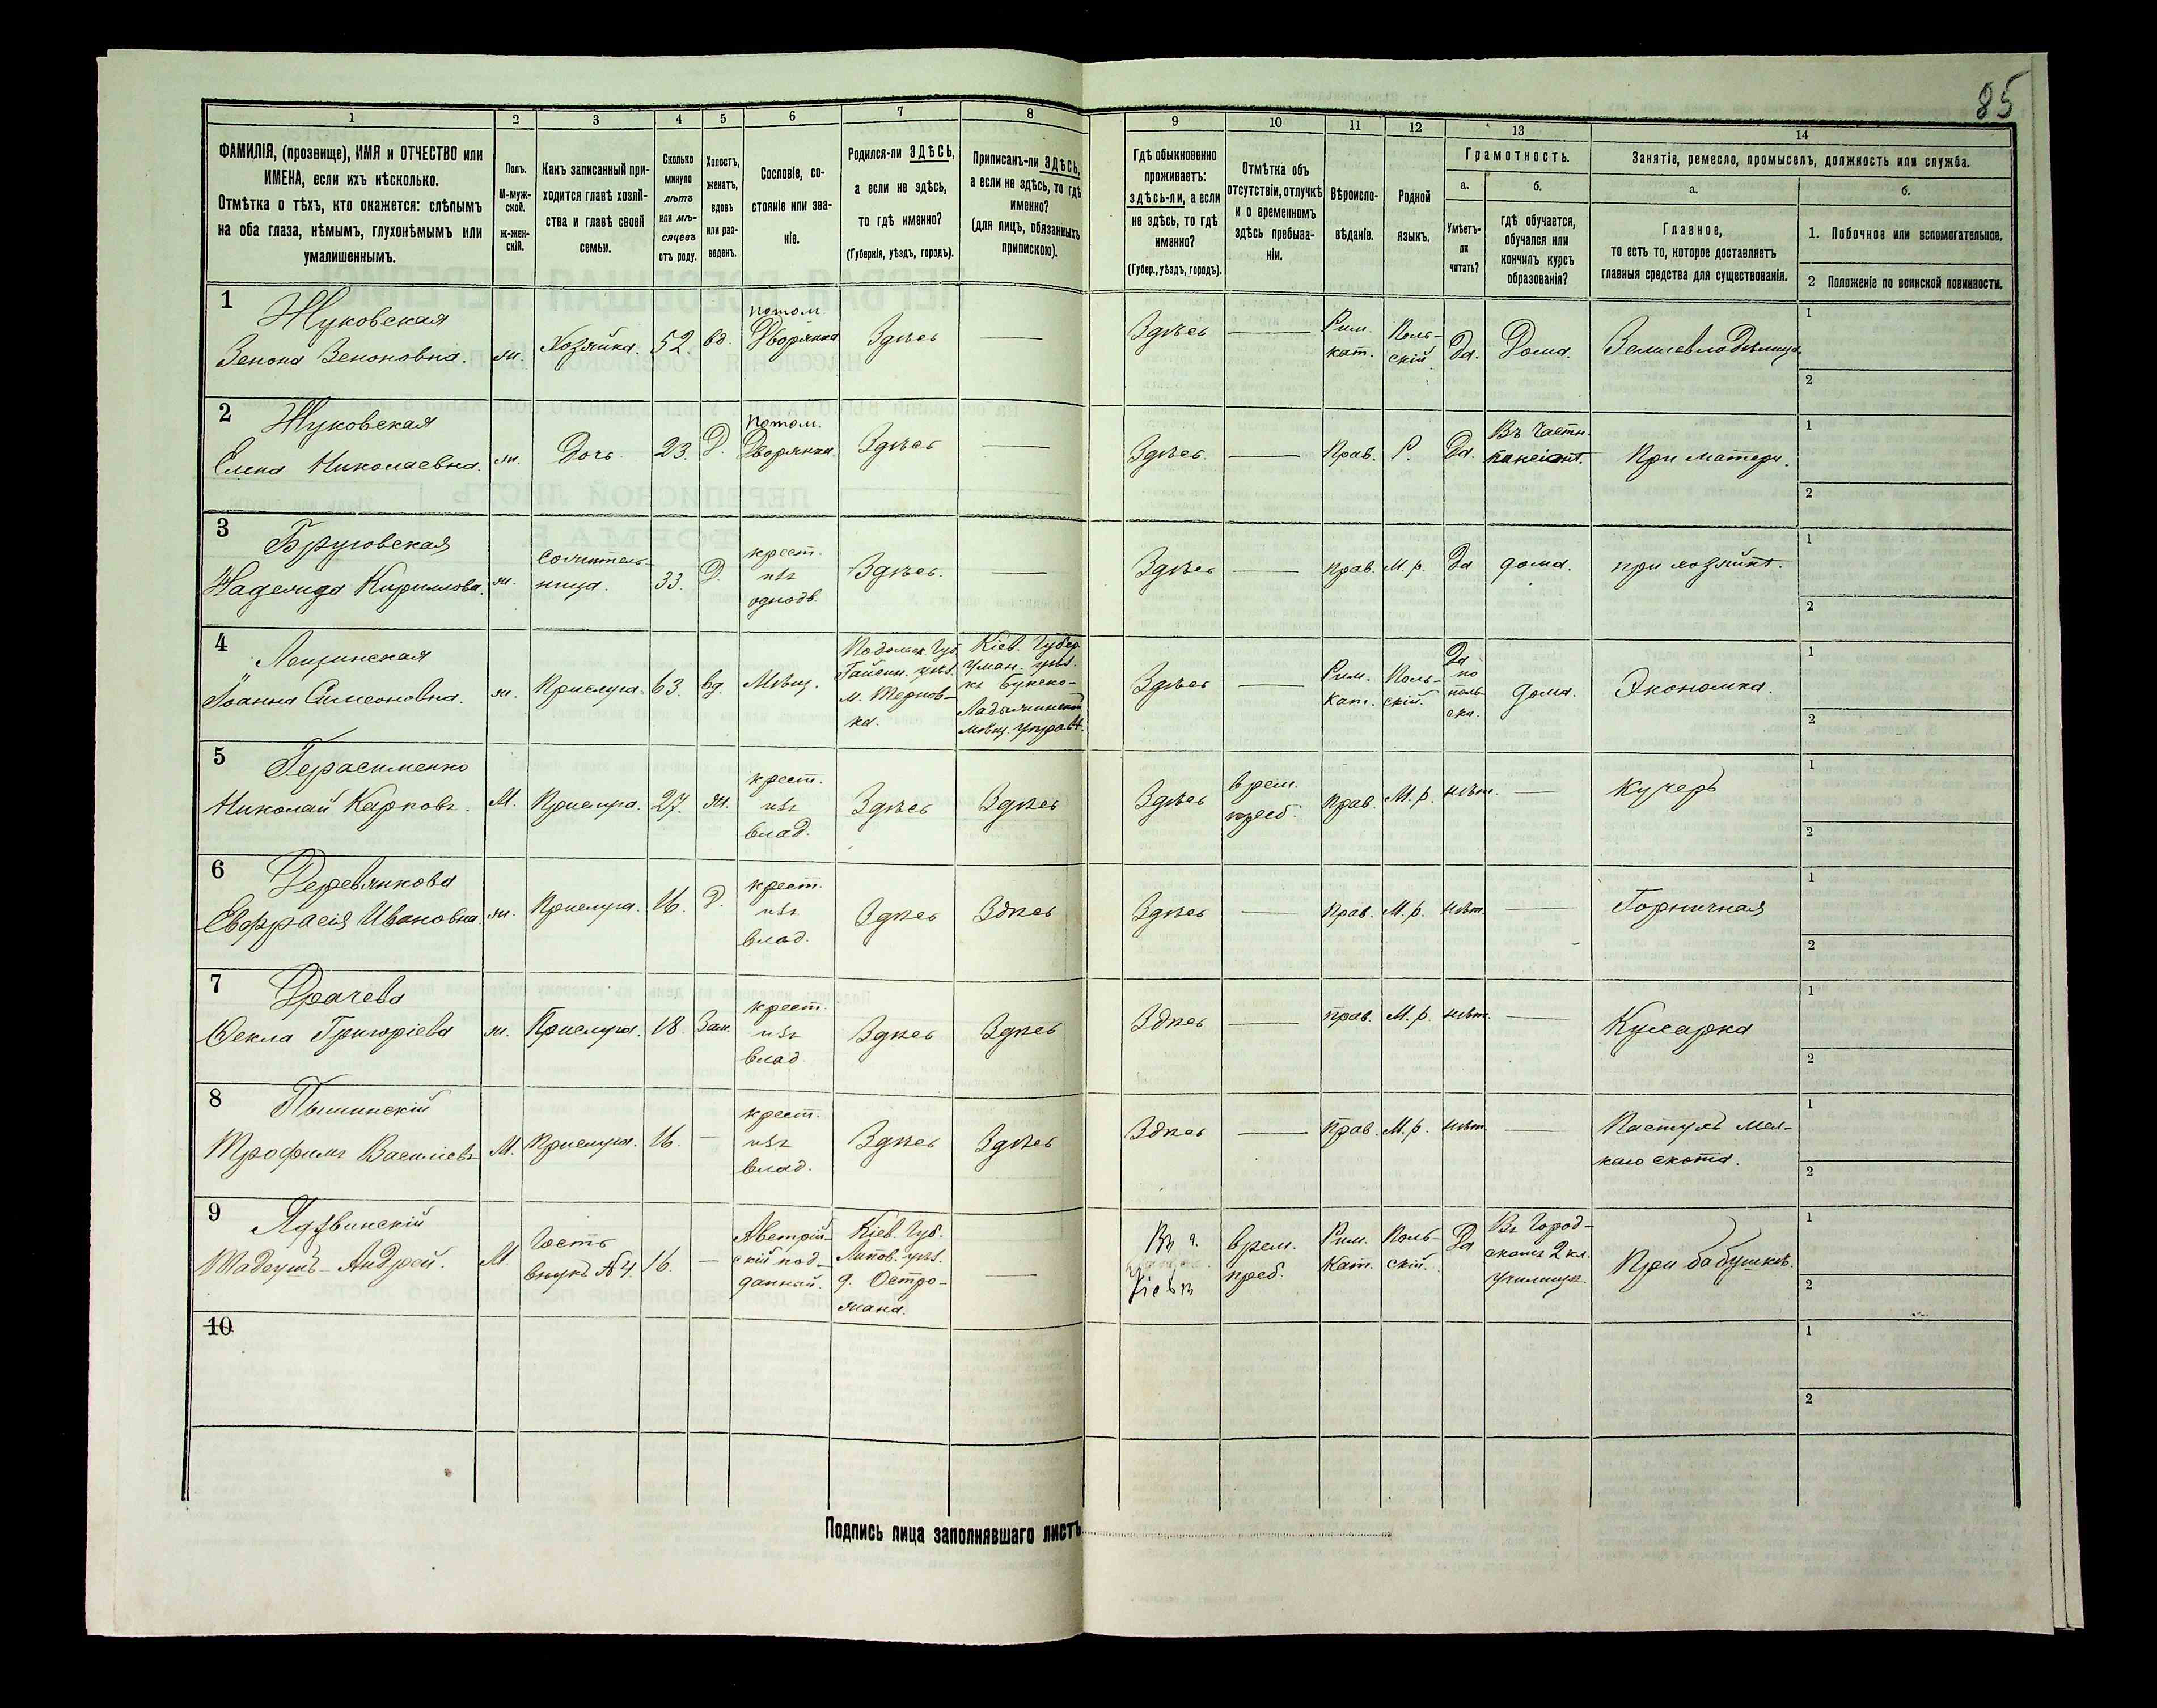 85
1 2 3 4 5 6 7 8 9 10 11 12 13 14
ФАМИЛІЯ, (прозвище), ИМЯ и ОТЧЕСТВО или
ИМЕНА, если ихъ нѣсколько.
Отмѣтка о тѣхъ, кто окажется: слѣпымъ
на оба глаза, нѣмымъ, глухонѣмымъ или
умалишеннымъ.
Полъ.
М-муж-
ской.
ж-жен-
скій.
Какъ записанный при-
ходится главѣ хозяй-
ства и главѣ своей
семьи.
Сколько
минуло
лѣтъ
или мѣ-
сяцевъ
отъ роду.
Холостъ,
женатъ,
вдовъ
или раз-
веденъ.
Сословіе, со-
стояніе или зва-
ніе.
Родился-ли ЗДѢСЬ,
а если не здѣсь,
то гдѣ именно?
(Губернія, уѣздъ, городъ).
Приписанъ-ли ЗДѢСЬ,
а если не здѣсь, то гдѣ
именно?
(для лицъ, обязанныхъ
припискою).
Гдѣ обыкновенно
проживаетъ:
здѣсь-ли, а если
не здѣсь, то гдѣ
именно?
(Губер., уѣздъ, городъ).
Отмѣтка объ
отсутствіи, отлучкѣ
и о временномъ
здѣсь пребыва-
ніи.
Вѣроиспо-
вѣданіе.
Родной
языкъ.
Грамотность.
а.
Умѣетъ-
ли
читать?
б.
гдѣ обучается,
обучался или
кончилъ курсъ
образованія?
Занятіе, ремесло, промыселъ, должность или служба.
а.
Главное,
то есть то, которое доставляетъ
главныя средства для существованія.
б.
1. Побочное или вспомогательное.
2 Положеніе по воинской повинности.
1
Жуковская
Зенона Зеноновна.
ж.
Хозяйка.
52.
вд.
потом.
Дворянка
Здѣсь
—
Здѣсь
—
Рим.
кат.
Поль-
скій.
Да.
Дома.
Землевладѣлица.
1
2
2
Жуковская
Елена Николаевна.
ж.
Дочь.
23.
Д.
потом.
Дворянка.
Здѣсь
—
Здѣсь.
—
Прав.
Р.
Да.
Въ частн.
пансіонѣ.
При матери.
1
2
3
Надежда Кириллова.
ж.
сожитель-
ница.
33.
Д.
крест.
изъ
однодв.
Здѣсь.
—
Здѣсь
—
прав.
М.р.
Да
дома.
при хозяйкѣ.
1
2
4
Лещинская
Іоанна Симеоновна.
ж.
Прислуга.
63.
вд.
Мѣщ.
Подольск. Губ.
Гайсин. уѣз.
м. Тернов-
ка.
Кіев. Губер
Уман. уѣз.
къ Букско-
Ладыжинской
мѣщ. управѣ.
Здѣсь
—
Рим.
Кат.
Поль-
скій.
Да
по
поль-
ски.
дома.
Экономка.
1
2
5
Герасименко
Николай Карповъ.
М.
Прислуга.
27.
ж.
крест.
изъ
влад.
Здѣсь
Здѣсь
Здѣсь
врем.
преб.
прав.
М.р.
нѣт.
—
Кучеръ
1
2
6
Деревянкова
Евфрасія Ивановна.
ж.
Прислуга.
16.
Д.
крест.
изъ
влад.
Здѣсь
Здѣсь
Здѣсь
—
прав.
М.р.
нѣт.
—
Горничная
1
2
7
Драчева
Ѳекла Григоріева
ж.
Прислуга.
18.
Зам.
крест.
изъ
влад
Здѣсь
Здѣсь
Здѣсь
—
прав.
М.р.
нѣт.
—
Кухарка
1
2
8
Трофимъ Василіевъ
М.
Прислуга.
16.
—
крест.
изъ
влад.
Здѣсь
Здѣсь
Здѣсь
—
прав.
М.р.
нѣт
—
Пастухъ мел-
каго скота.
1
2
9
Тадеушъ-Андрей.
М.
Гость
внукъ №4.
16.
—
Австрій-
скій под-
данный.
Кіев. Губ.
Липов. уѣз.
д. Остро-
жана.
—
Въ г.
врем.
преб.
Рим.
Кат.
Поль-
скій.
Да
Въ Город-
скомъ 2 кл.
училищѣ.
При бабушкѣ.
1
2
10
1
2
Подпись лица заполнявшаго листъ